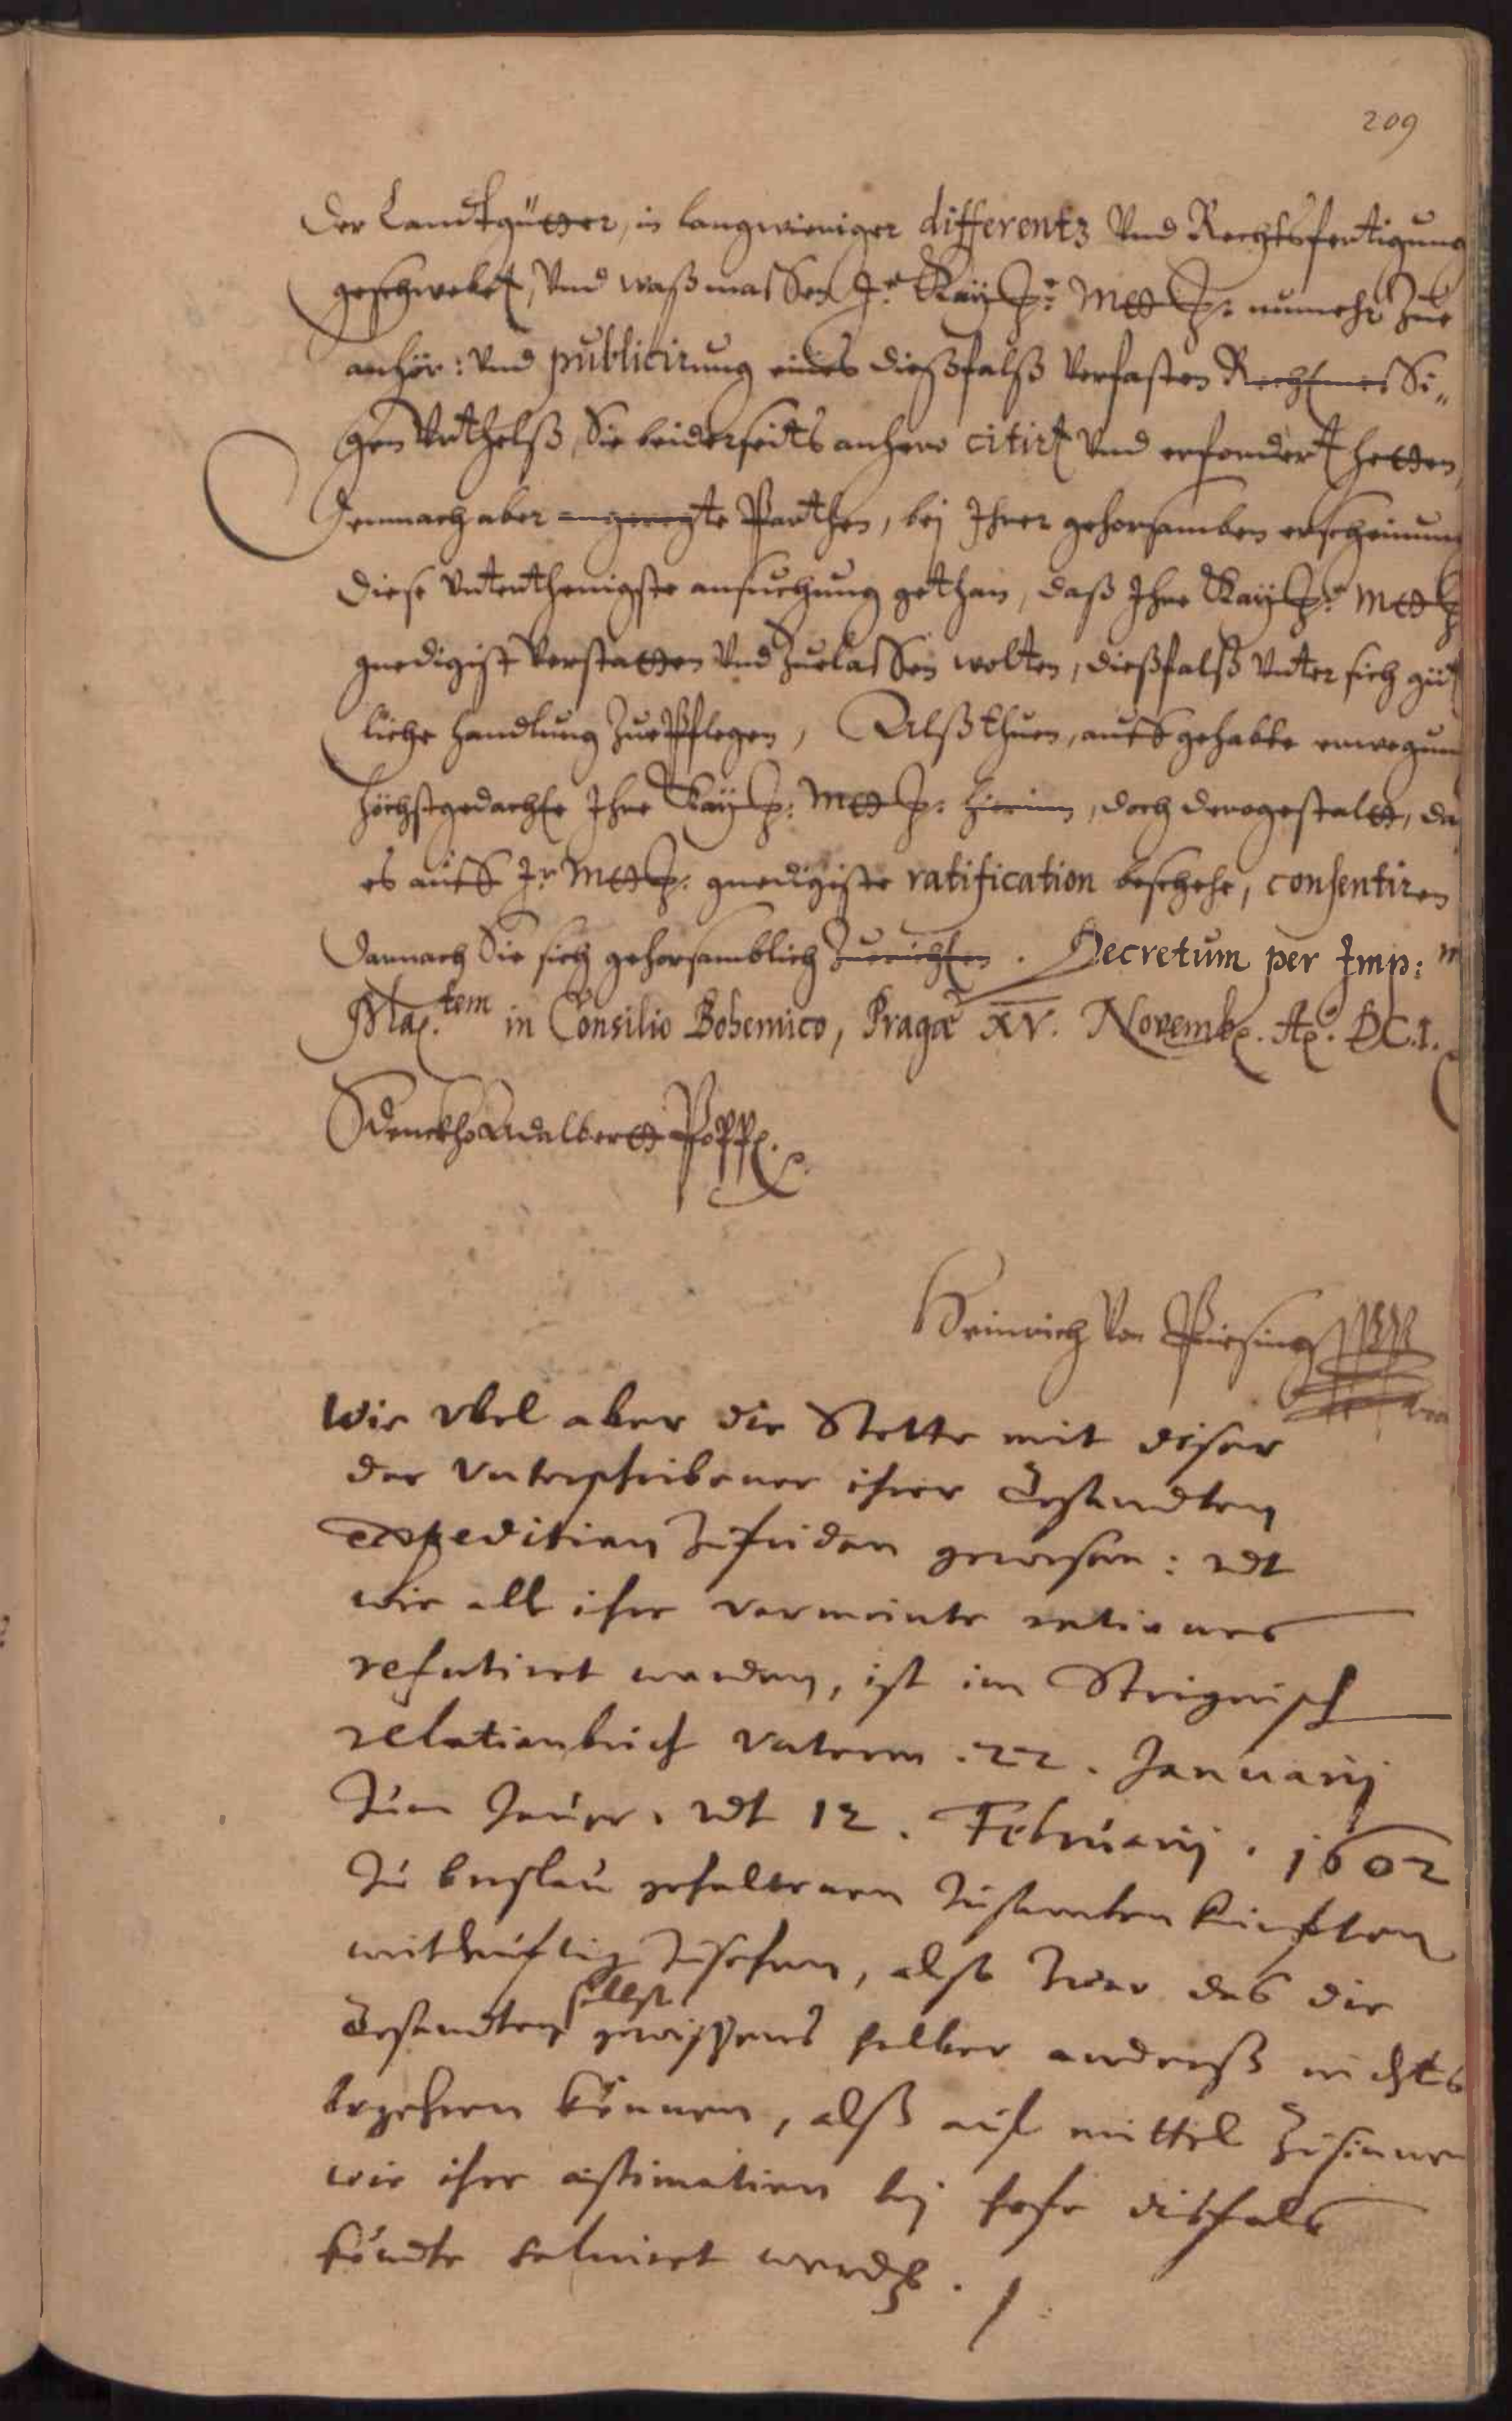 209
der Landtgütter, in langwieriger differentz Vnd Rechtsfertigung
geschwebet, Vnd waßmassen Ir Kaÿ: Mtt: nunmehr Zue
anhör: Vnd publicirung eines dießfalß Verfasten Rechtmessi„
gen Vrthelß, Sie beiderseits anhero citirt Vnd erfordert hetten,
Demnach aber angeregte Parthen, bej Ihrer gehorsamben erscheinung
diese Vnterthenigste ansuchung gethan, daß Ihre Kaÿ: Mtt:
gnedigist Verstatten Vnd Zuelassen wolten, dießfalß Vnter sich güt
liche handlung Zue Pflegen, Alß thuen, auff gehabte erwegung
höchstgedachte Ihre Kaÿ: Mtt: hierinn, doch derogestaltt, da
es auff Ir Mtt: gnedigiste ratification beschehe, consentiren
darnach Sie sich gehorsamblich Zurichten. Decretum per Imp: m
Ma.tem in Consilio Bohemico, Pragæ XV. Novemb. Ao. DC.I.
Sdenckho Adalbertt Popp.
Heinrich Von Piesing
Wie vbel aber die Stette mit diser
der Vnterschribener ihrer Gesandten
expedition Zufriden gewesen: vdt
wie all ihre vermeinte rationes
refutiret worden, ist im Strignisch
relationbuch Vnterm .22. Januarij
Zum Jauer. vdt 12. Februarij. 1602
Zu breslau gehaltenen Zusamben kunften
weitleuftig Zusehen, alß Zwar das die
Gesandten selbst gewissens halber anderß nichts
begehren können, alß auf mittel Zusinnen
wie ihre æstimation bej hofe disfals
köndte salviret werden.